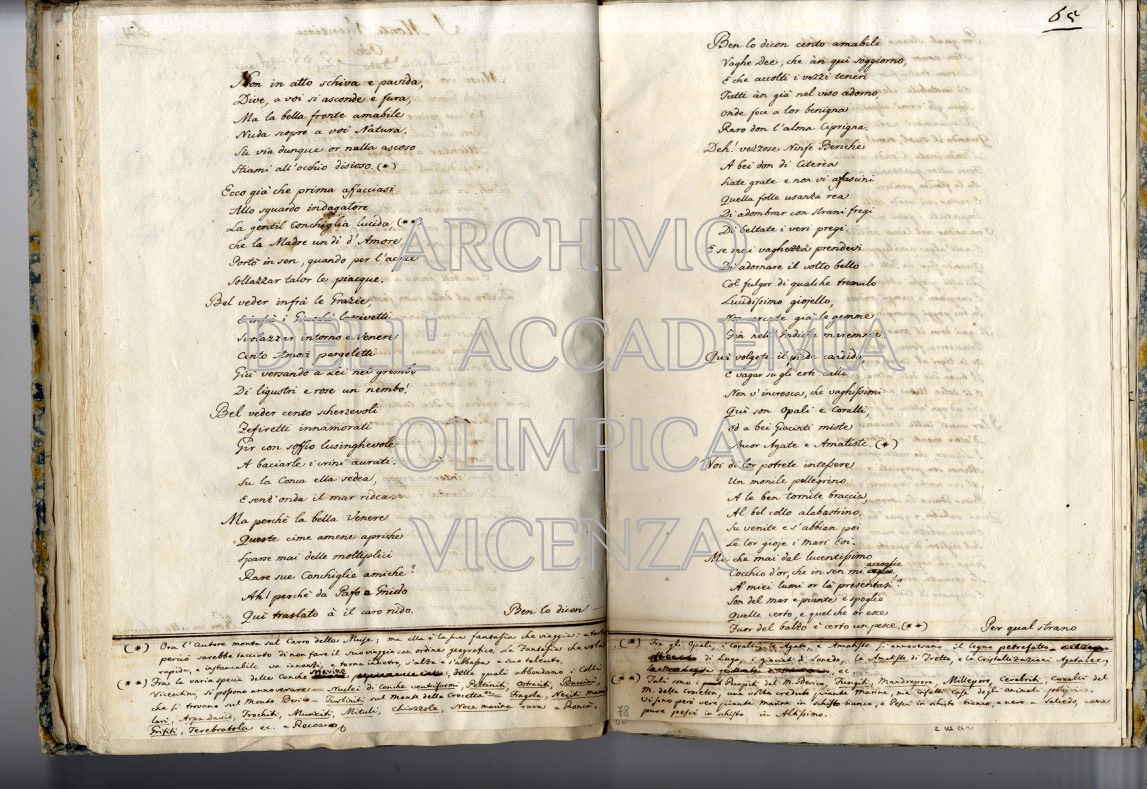 Non in atto schiva e pavida,
Dive, a voi si asconde e fura,
Ma la bella fronte amabile
Nuda scopre a voi Natura.
Su via dunque or nulla ascoso
Stiami all'occhio disioso. (*)
Ecco già che prima affacciasi
Allo sguardo indagatore
La gentil Conchiglia lucida (**)
che la Madre un dì d'Amore
Portò in sen, quando per l'acque
Sollazzar talor le piacque.
Bel veder infra le Grazie,
i lascivetti
Svolazzar intorno a Venere
Cento Amori pargoletti
Giù versando a Lei nei grembi
Di ligustri e rose un nembo!
Bel veder cento scherzevoli
Zefiretti innamorati
Gir con soffio lusinghevole
A baciarle i crini aurati.
Su la Conca ella sedea,
E senz'onda il mar ridea.
Ma perchè la bella Venere
Queste cime amene apriche
Sparse mai delle moltiplici
Rare sue Conchiglie amiche?
Ah! perchè da Pafo a Gnido
Qui traslato à il caro nido.
Ben lo dicon
(*) Ora l'Autore monta sul Carro delle Muse; ma ella è la sua fantasia che viaggia: a torto
perciò sarebbe tacciato di non fare il suo viaggio con ordine geografico. La Fantasia che vola
rapida, e instancabile va innanzi, e torna indietro, s'alza e s'abbassa a suo talento.
(**) Fra le varie specie delle Conche delle quali abbondano i Colli
Vicentini, si possono annoverare Nuclei di Conche ventriformi, Pettiniti, Ostraciti, Bucciniti,
che si trovano sul Monte Berico Turbiniti sul Monte della Crocetta Fragola, Neriti mam
lari, Arpa david, Trochiti, Muriciti, Mituli, chiozzole, Noce marina rara a Roncà,
Grifiti, Terebratola ec. a Recoaro
65
Ben lo dicon cento amabili
Vaghe Dee, che àn qui soggiorno,
E che accolti i vezzi teneri
Tutti àn già nel viso adorno,
Onde fece a lor benigna
Raro don l'alma Ciprigna.
Deh! vezzose Ninfe Beriche
A bei don di Citerea
Siate grate e non vi affascini
Quella folle usanza rea
Di adombrar con strani fregi
Di beltate i veri pregi.
E se mai vaghezza prendevi
Di adornare il volto bello
Col fulgor di qualche tremulo
Lucidissimo giojello,
Non cercate già le gemme
Fin nell'Indiche maremme.
Qui volgete il piede candido,
E vagar su gli erti calli
Non v'incresca, che vaghissimi
Qui son Opali e Coralli,
Ed a bei Giacinti miste
Buor Agate e Amatiste. (*)
Voi di lor potrete intessere
Un monile pellegrino
A le ben tornite braccia,
Al bel collo alabastrino.
Su venite e s'abbian poi
Le lor gioje i mari Eoi.
Ma che mai dal lucentissimo
Cocchio d'or, che in sen mi accoglie
A miei lumi or là presentasi?
Son del mar e piante e spoglie
Quelle certo, e quel che or esce
Fuor del balzo è certo un pesce. (**)
Per qual strano
(*) Fra gli Opali, i Coralli, le Agate, e Amatiste si annoverano il legno petrefatto
di Lugo, i giacinti di Lonedo, le Amatiste di Tretto, e le Cristallizazioni Agatacee,
(**) Tali sono i Punpiti del M. Berico, Fungiti, Madrepore, Millepore, Cerebriti, Coralli del
M. della Crocetta, una volta creduti piante marine, ma infatti case degli animali polipi.
Vi sono però vere piante marine in schisto bianco, e Pesci in schisto bianco, e nero a Salcedo, come
pure pesci in schisto in Altissimo.
78
ARCHIVIO
DELL'ACCADEMIA
OLIMPICA
VICENZA